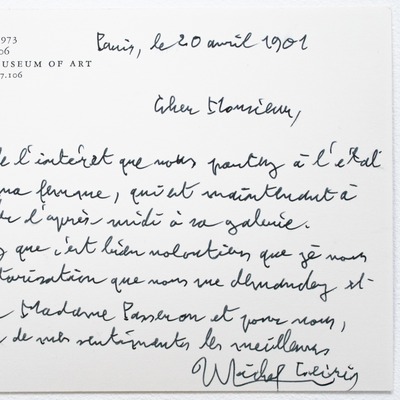 1973
06
USEUM OF ART
7.106
Paris, le 20 avril 1901
Cher Monsieur,
l'intérêt que vous portez à l'état
ma femme, qui est maintenant à
l'après-midi à sa galerie.
que c'est bien volontiers que je vous
torisation que vous me demandez et
Madame Passeron et pour vous,
de mes sentiments les meilleurs
Michel Leiris